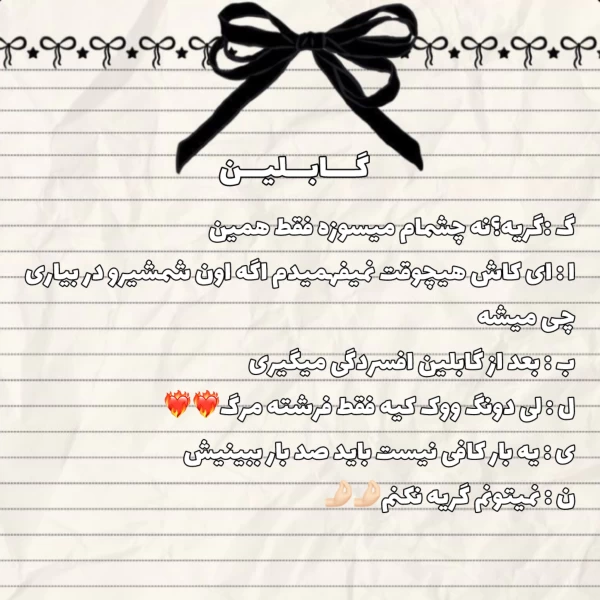 گـــابـــلیـــن
گـ :گریه؟نه چشمام میسوزه فقط همین
ا : ای کاش هیچوقت نمیفهمیدم اگه اون شمشیرو در بیاری
چی میشه
ب : بعد از گابلین افسردگی میگیری
ل : لی دونگ ووک کیه فقط فرشته مرگ❤️‍🔥❤️‍🔥
ی : یه بار کافی نیست باید صد بار ببینیش
ن : نمیتونم گریه نکنم👌🏻👌🏻